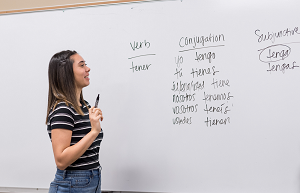 Verb
tener
Conjugation
yo tengo
tú tienes
tiene
nosotros tenemos
vosotros tenéis
ustedes tienen
Subjunctive
tenga
tengas